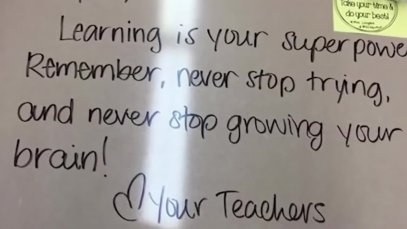 Take your time &
do your best!
Learning is your superpowe
Remember, never stop trying,
and never stop growing your
brain!
♡ Your Teachers